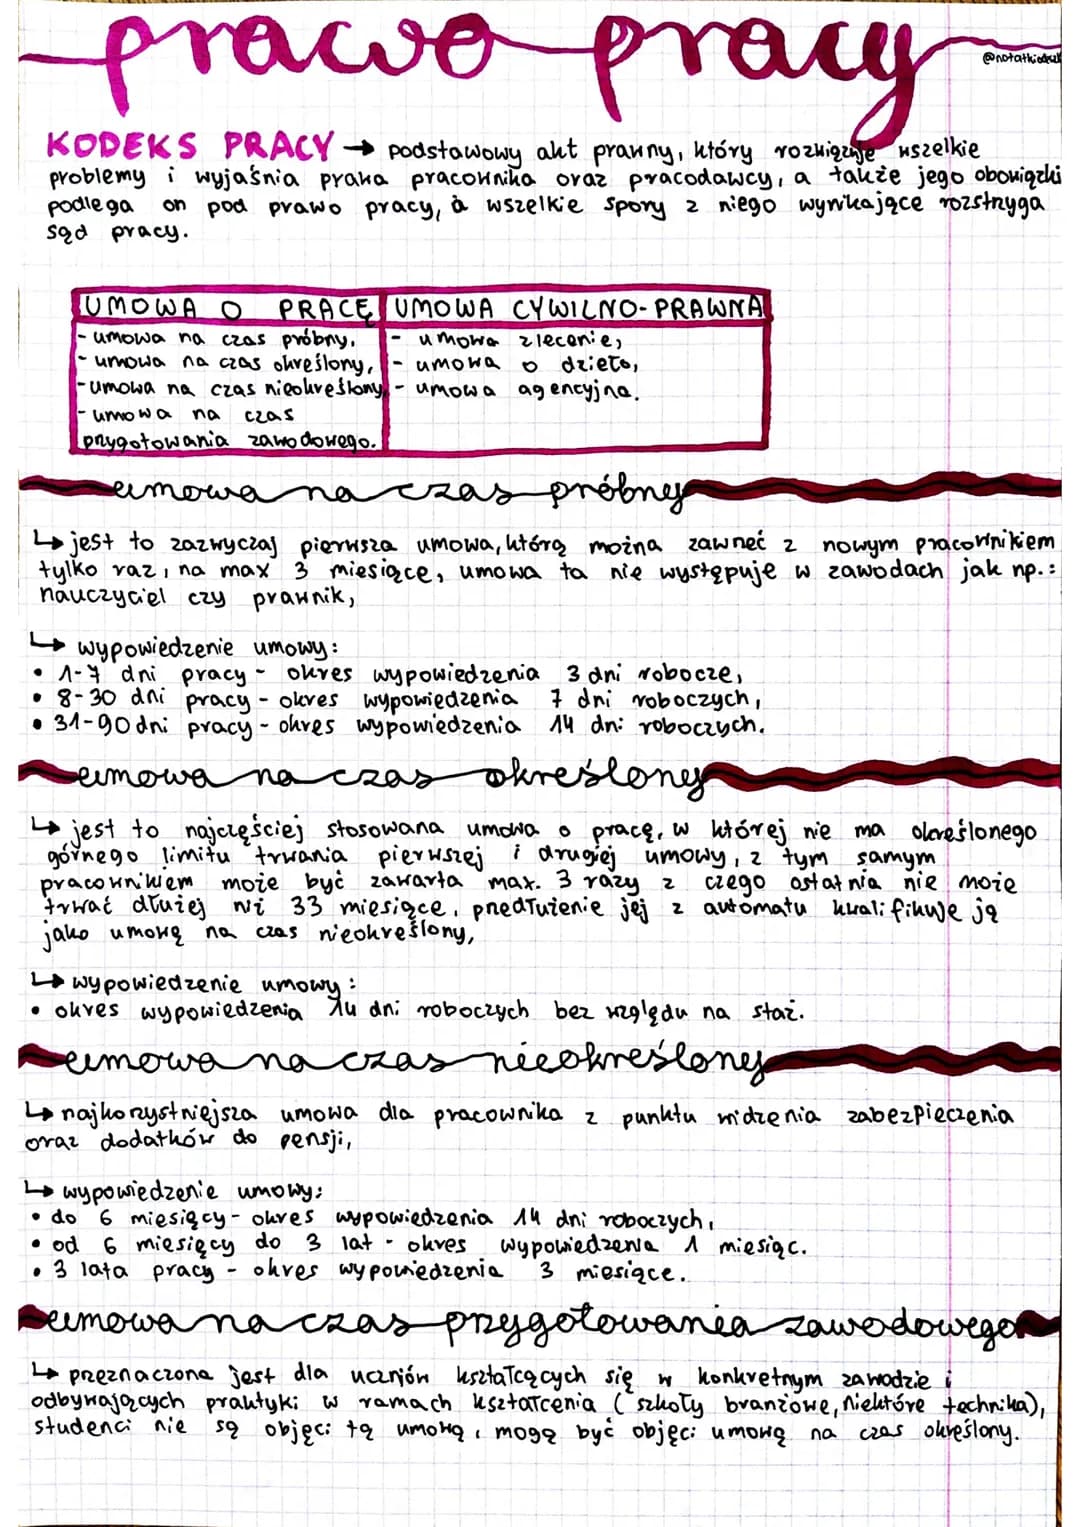 prawo pracy
KODEKS PRACY → podstawowy akt prawny, który rozwiązuje wszelkie
problemy i wyjaśnia prawa pracownika oraz pracodawcy, a także jego obowiązki
podlega on pod prawo pracy, a wszelkie spory z niego wynikające rozstrzyga
sąd pracy.
UMOWA O PRACĘ UMOWA CYWILNO-PRAWNA
- umowa na czas próbny, - umowa zlecenie,
- umowa na czas określony, - umowa o dzieło,
- umowa na czas nieokreślony, - umowa agencyjna.
- umowa na czas
przygotowania zawodowego.
umowa na czas próbny
↳ jest to zazwyczaj pierwsza umowa, którą można zawrzeć z nowym pracownikiem
tylko raz, na max 3 miesiące, umowa ta nie występuje w zawodach jak np.:
nauczyciel czy prawnik,
↳ wypowiedzenie umowy:
• 1-7 dni pracy - okres wypowiedzenia 3 dni robocze,
• 8-30 dni pracy - okres wypowiedzenia 7 dni roboczych,
• 31-90 dni pracy - okres wypowiedzenia 14 dni roboczych.
umowa na czas określony
↳ jest to najczęściej stosowana umowa o pracę, w której nie ma określonego
górnego limitu trwania pierwszej i drugiej umowy, z tym samym
pracownikiem może być zawarta max. 3 razy z czego ostatnia nie może
trwać dłużej niż 33 miesiące, przedłużenie jej z automatu kwalifikuje ją
jako umowę na czas nieokreślony,
↳ wypowiedzenie umowy:
• okres wypowiedzenia 14 dni roboczych bez względu na staż.
umowa na czas nieokreślony
↳ najkorzystniejsza umowa dla pracownika z punktu widzenia zabezpieczenia
oraz dodatków do pensji,
↳ wypowiedzenie umowy:
• do 6 miesięcy - okres wypowiedzenia 14 dni roboczych,
• od 6 miesięcy do 3 lat - okres wypowiedzenia 1 miesiąc.
• 3 lata pracy - okres wypowiedzenia 3 miesiące.
umowa na czas przygotowania zawodowego
↳ przeznaczona jest dla uczniów kształcących się w konkretnym zawodzie i
odbywających praktyki w ramach kształcenia (szkoły branżowe, niektóre technika),
studenci nie są objęci tą umową, mogą być objęci umową na czas określony.